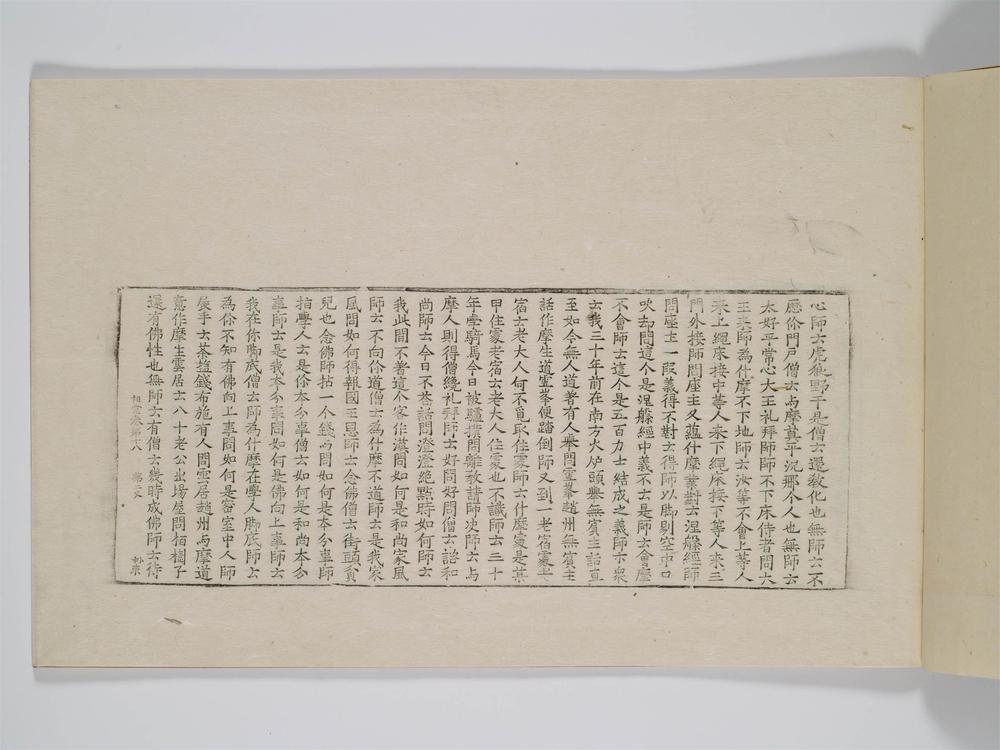 心師云虎狼野干是僧云還教化也無師云不
歷你門戶僧云与摩莫平沉那个人也無師云
太好平常心大王礼拜師師不下床侍者問大
王来師為什摩不下地師云汝等不會上等人
来上繩床接中等人来下繩床接下等人来三
門外接師問座主久蘊什摩業對云涅槃經師
問座主一段義得不對云得師以脚剔空中口
吹却問這个是涅槃經中義不云是師云會摩
不會師云這个是五百力士結成之義師示衆
云我三十年前在南方火炉頭舉無賓主話直
至如今無人道著有人舉問雪峯趙州無賓主
話作摩生道雪峯便踏倒師又到一老宿處老
宿云老大人何不覓取住處師云什摩處是某
甲住處老宿云老大人住處也不識師云三十
年學騎馬今日被驢撲問離教請師决師云与
摩人則得僧纔礼拜師云好問好問僧云諮和
尚師云今日不荅話問澄澄絶點時如何師云
我此間不著這个客作漢問如何是和尚家風
師云不向你道僧云為什摩不道師云是我家
風問如何得報國王恩師云念佛僧云街頭貧
兒也念佛師拈一个錢与問如何是本分事師
指學人云是你本分事僧云如何是和尚本分
事師云是我本分事問如何是佛向上事師云
我在你脚底僧云師為什摩在學人脚底師云
為你不知有佛向上事問如何是密室中人師
展手云茶塩錢布施有人問雲居趙州与摩道
意作摩生雲居云八十老公出場屋問栢樹子
還有佛性也無師云有僧云幾時成佛師云待
祖堂卷第十八